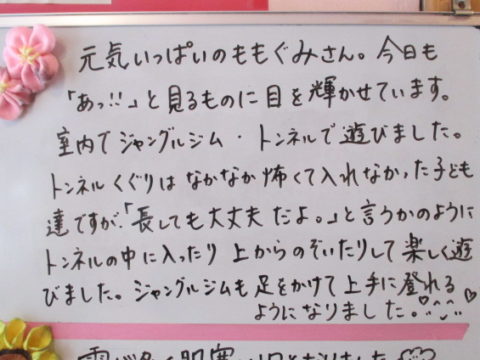 元気いっぱいのももぐみさん。今日も
「あっ!!」と見るものに目を輝かせています。
室内でジャングルジム・トンネルで遊びました。
トンネルくぐりはなかなか怖くて入れなかった子ども
達ですが、「長しても大丈夫だよ。」と言うかのように
トンネルの中に入ったり上からのぞいたりして楽しく遊
びました。ジャングルジムも足をかけて上手に登れる
ようになりました。